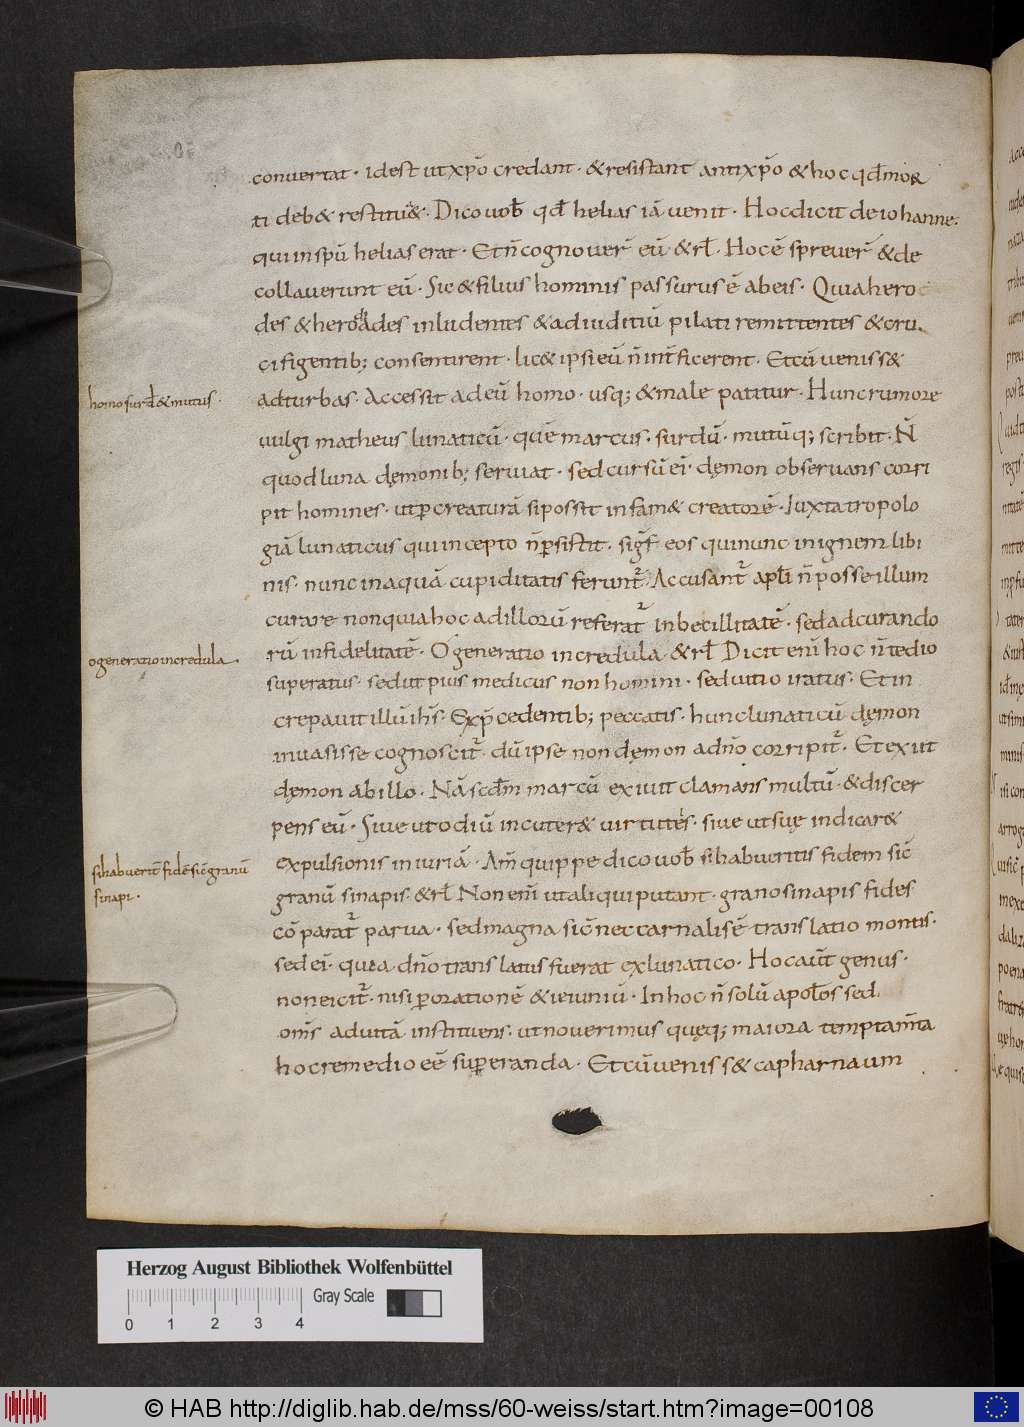 convertat · idest ut xp̄o credant · & resistant antixp̄o & hoc qđ mor
ti deb& restitu&· Dico uob̄ qđ helias iā uenit · Hoc dicit de iohanne·
qui in sp̄u helias erat · Et n̄ cognouer̄ eū & rł· Hoc ē spreuer̄ & de
collauerunt eū · Sic & filius hominis passurus ē ab eis · Quia hero
des & herodiades inludentes & ad iuditiū pilati remittentes & cru
cifigentib; consentirent · lic& ipsi eū n̄ int̄ficerent · Et cū ueniss&
ad turbas · Accessit ad eū homo · usq; & male patitur · Hunc rumore
uulgi matheus lunaticū · quē marcus · surdū · mutūq; scribit · N̄
quod luna dęmonib; seruiat · sed cursū ei· dęmon obseruans corri
pit homines · ut ꝑ creaturā si possit infam& creatorē · Iuxta tropolo
giā lunaticus qui incepto n̄ ꝑsistit · sigf̄ eos qui nunc in ignem libi
nis · nunc in aquā cupiditatis ferunt᷑· Accusant᷑ apłi n̄ posse illum
curare non quia hoc ad illorū referat᷑ inbecillitatē · sed ad curando
rū infidelitatē · O generatio incredula · & rł Dicit eni̅ hoc n̄ tedio
superatus · sed ut pius medicus non homini · sed uitio iratus · Et in
crepauit illū ih̄s · Ex p̄cedentib; peccatis · hunc lunaticū dęmon
inuasisse cognoscit᷑· dū ipse non dęmon a dn̄o corripit᷑· Et exiit
dęmon ab illo · Nā scđm marcū exiuit clamans multū · & discer
pens eū · Siue ut odiū incuter& uirtutes · siue ut suę indicar&
expulsionis iniuriā · Am̄ quippe dico uob̄ si habueritis fidem sic̄
granū sinapis · & rł Non eni̅ ut aliqui putant · grano sinapis fides
cō parat᷑ parua · sed magna sic̄ nec carnalis ē translatio montis·
sed ei· quia a dn̄o translatus fuerat ex lunatico · Hoc aut̄ genus·
non eicit᷑· nisi ꝑ orationē & ieiuniū · In hoc n̄ solū apoł̄os sed
om̄s ad uitā instituens · ut nouerimus quęq; maiora temptam̄ta
hoc remedio eē suꝑeranda · Et cū ueniss& capharnaum
homo surđ & mutus ·
o generatio incredula ·
si habuerit̄ fidē sic̄ granū
sinapi ·
Herzog August Bibliothek Wolfenbüttel
Gray Scale
0 1 2 3 4
© HAB http://diglib.hab.de/mss/60-weiss/start.htm?image=00108